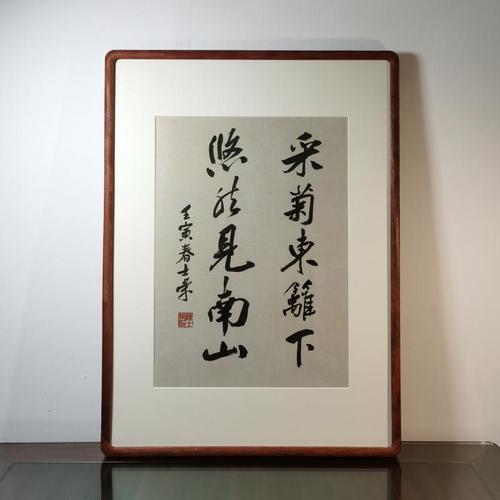 采菊東籬下
悠然見南山
壬寅春士榮